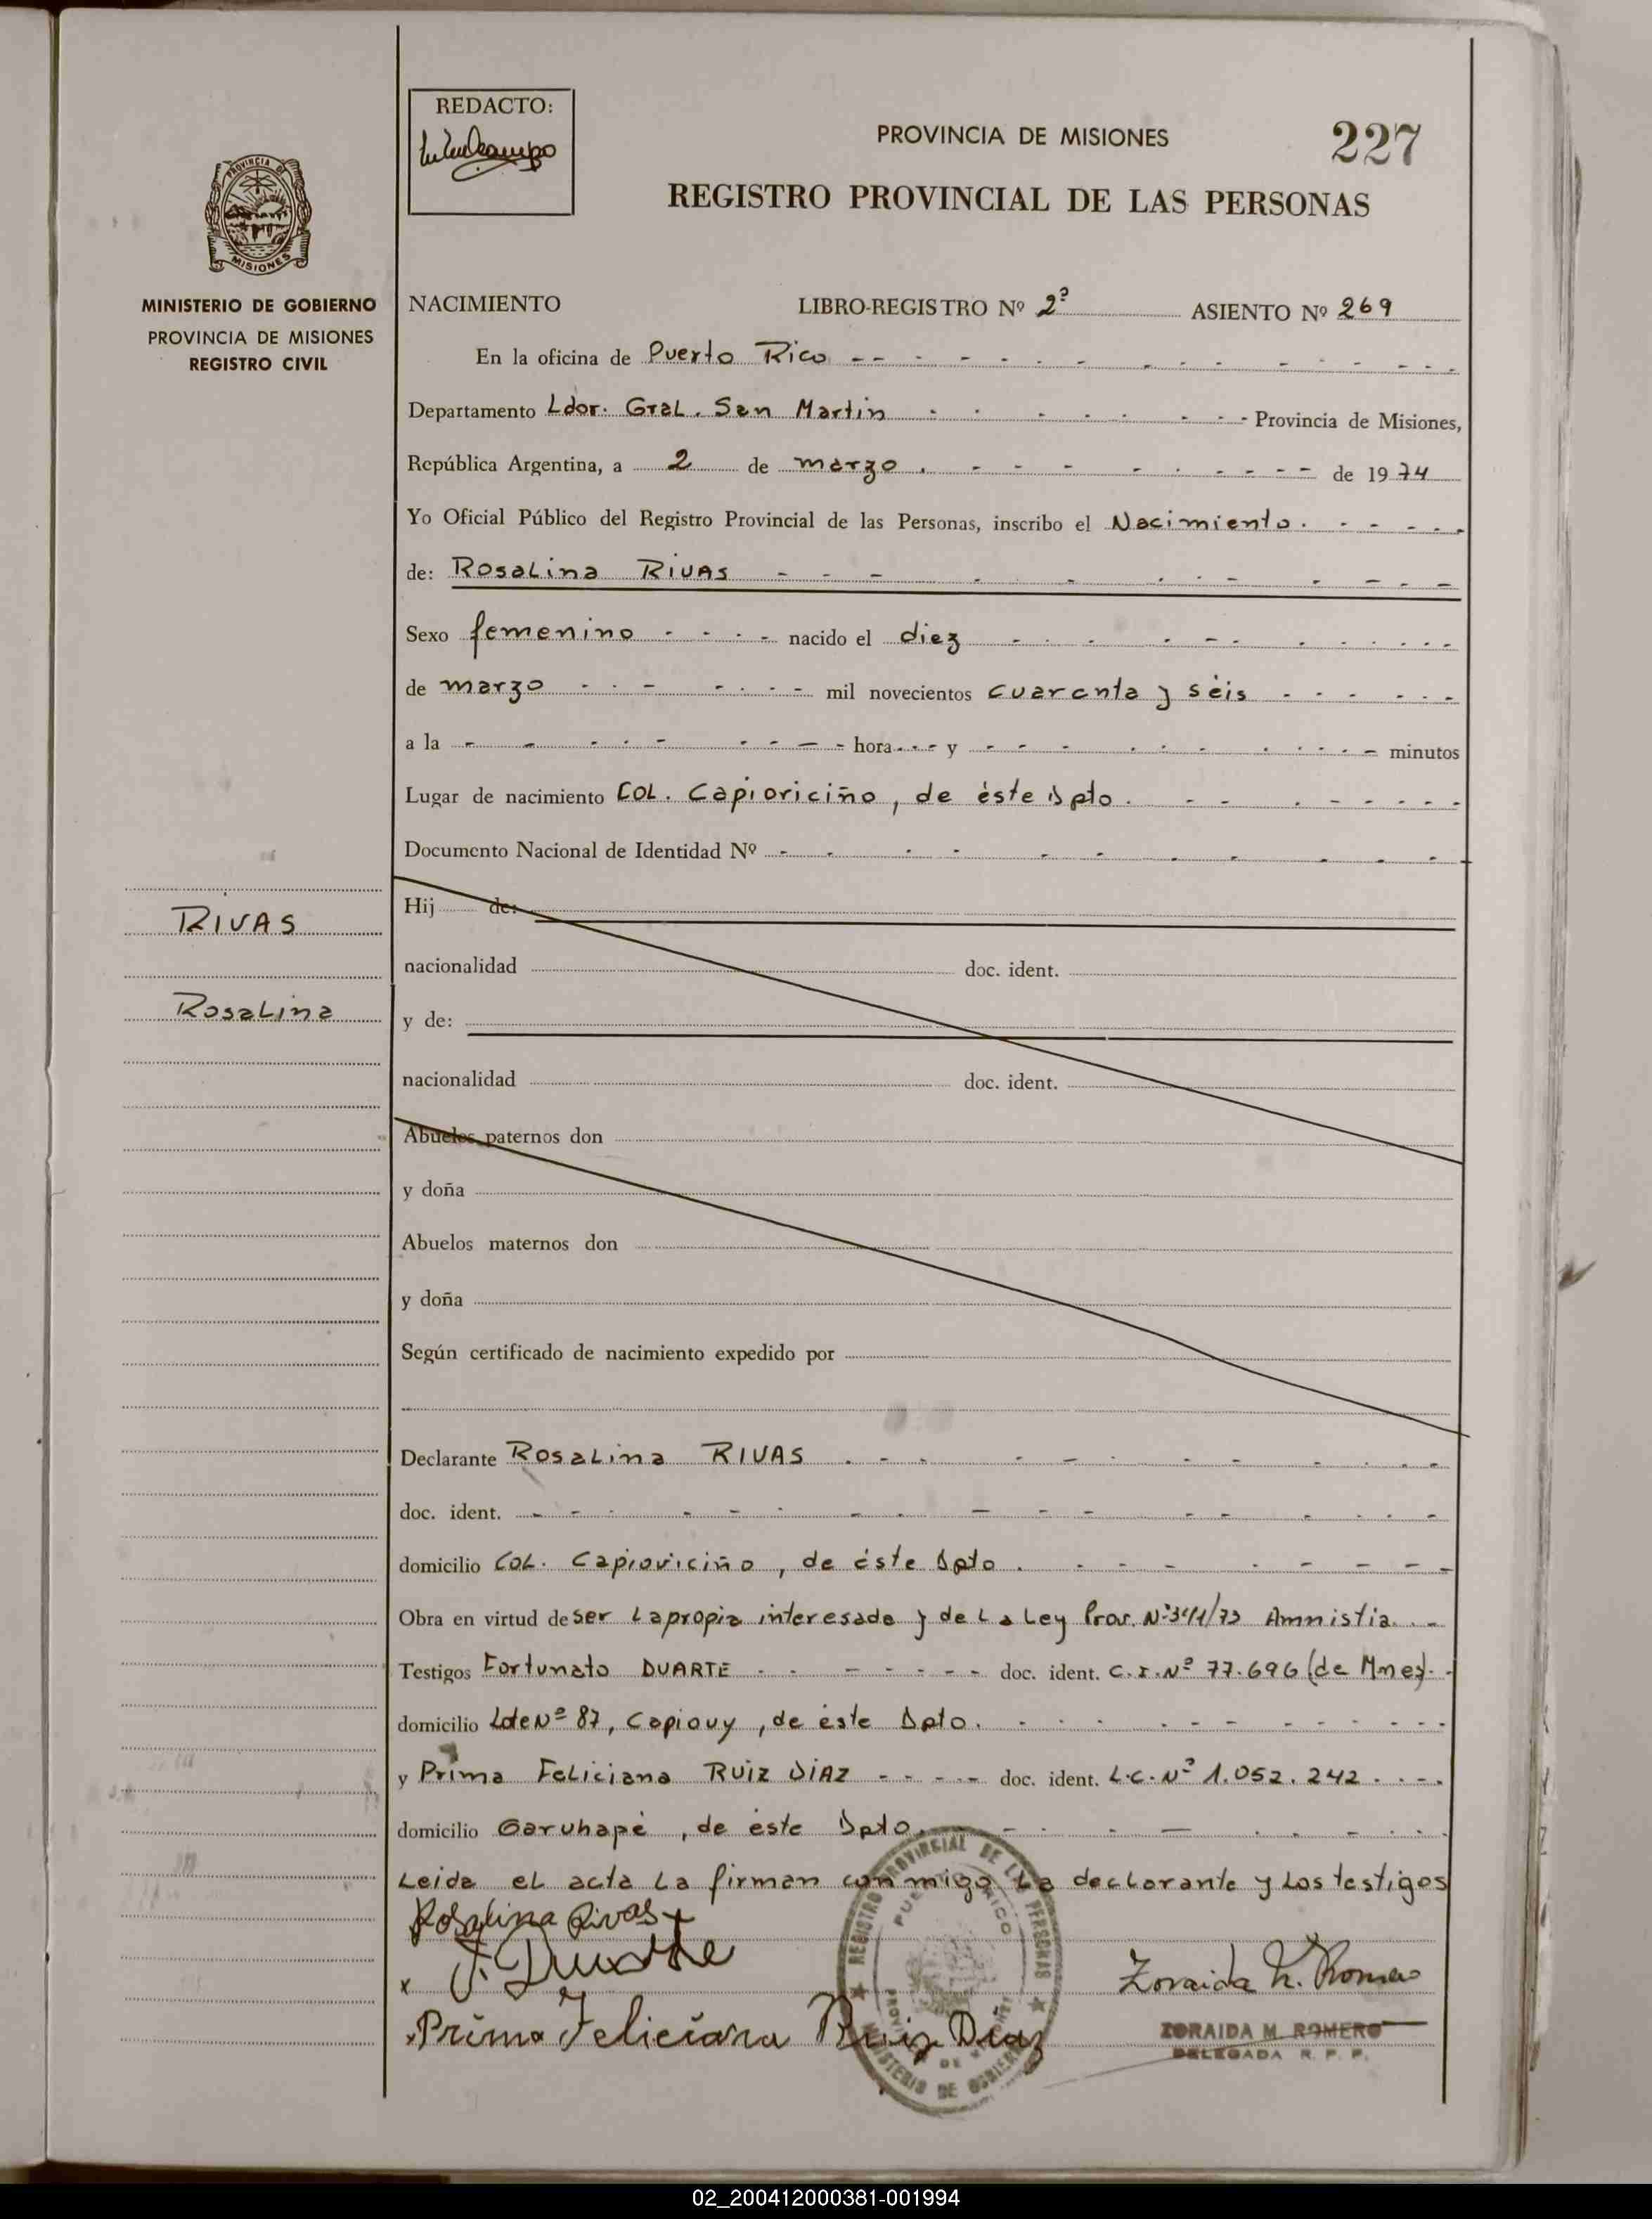 REDACTO:
PROVINCIA DE MISIONES
227
REGISTRO PROVINCIAL DE LAS PERSONAS
PROVINCIA DE
MISIONES
MINISTERIO DE GOBIERNO
PROVINCIA DE MISIONES
REGISTRO CIVIL
NACIMIENTO LIBRO-REGISTRO Nº 2º ASIENTO Nº 269
En la oficina de Puerto Rico
Departamento Ldor. Gral. San Martin Provincia de Misiones,
República Argentina, a 2 de marzo de 1974
Yo Oficial Público del Registro Provincial de las Personas, inscribo el Nacimiento.
de: Rosalina RIVAS
Sexo femenino nacido el diez
de marzo mil novecientos cuarenta y séis
a la hora y minutos
Lugar de nacimiento COL. Capioviciño, de éste Dpto.
Documento Nacional de Identidad Nº
RIVAS
Rosalina
Hij de:
nacionalidad doc. ident.
y de:
nacionalidad doc. ident.
Abuelos paternos don
y doña
Abuelos maternos don
y doña
Según certificado de nacimiento expedido por
Declarante Rosalina RIVAS
doc. ident.
domicilio COL. Capioviciño, de éste Dpto.
Obra en virtud de ser la propia interesada y de La Ley Prov. Nº 341/73 Amnistia.
Testigos Fortunato DUARTE doc. ident. C.I. Nº 77.696 (de Mnes).
domicilio Lote Nº 87, Capiovy, de éste Dpto.
y Prima Feliciana RUIZ DIAZ doc. ident. L.C. Nº 1.052.242
domicilio Garuhapé, de éste Dpto.
Leida el acta la firman conmigo la declarante y los testigos
Rosalina Rivas
x F. Duarte
Zoraida M. Romero
x Prima Feliciana Ruiz Diaz
REGISTRO PROVINCIAL DE LAS PERSONAS
PUERTO RICO
PROVINCIA DE MISIONES
MINISTERIO DE GOBIERNO
ZORAIDA M. ROMERO
DELEGADA R. P. P.
02_200412000381-001994